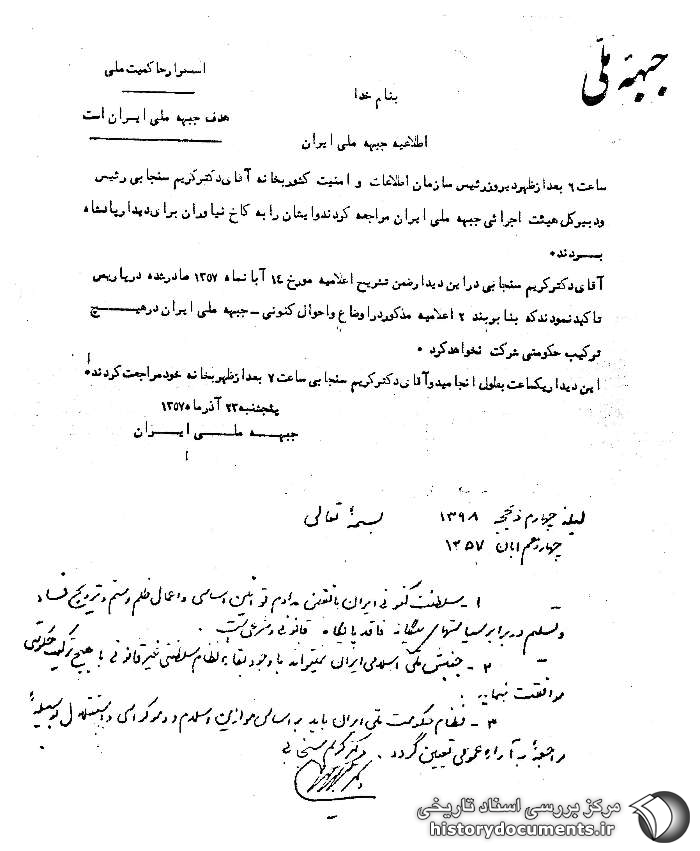 جبههٔ ملّی
استقرار حاکمیت ملی
هدف جبهه ملی ایران است
بنام خدا
اطلاعیه جبهه ملی ایران
ساعت ٦ بعدازظهر دیروز رئیس سازمان اطلاعات و امنیت کشور بخانه آقای دکتر کریم سنجابی رئیس
و دبیر کل هیئت اجرائی جبهه ملی ایران مراجعه کردند و ایشان را به کاخ نیاوران برای دیدار پادشاه
بـــردند ٠
آقای دکتر کریم سنجابی در این دیدار ضمن تشریح اعلامیه مورخ ١٤ آبانماه ١٣٥٧ صادر شده در پاریس
تاکید نمودند که بنا بر بند ٢ اعلامیه مذکور در اوضاع و احوال کنونی ــ جبهه ملی ایران در هیـــچ
ترکیب حکومتی شرکت نخواهد کرد ٠
این دیدار یکساعت بطول انجامید و آقای دکتر کریم سنجابی ساعت ٧ بعدازظهر بخانه خود مراجعت کردند ٠
پنجشنبه ٢٣ آذر ماه ١٣٥٧
جبهـــه ملـــی ایـــران
لیله چهارم ذیحجه ١٣٩٨
بسمه تعالی
چهاردهم ابان ١٣٥٧
١ ــ سلطنت کنونی ایران با نقض مداوم قوانین اساسی و اعمال ظلم و ستم و ترویج فساد
و تسلیم در برابر سیاستهای بیگانه فاقد پایگاه قانونی و شرعی است.
٢ ــ جنبش ملی اسلامی ایران نمیتواند با وجود بقاء نظام سلطنتی غیر قانونی با هیچ ترکیب حکومتی
موافقت نماید.
٣ ــ نظام حکومت ملی ایران باید بر اساس موازین اسلام و دموکراسی و استقلال بوسیلهٔ
مراجعه به آراء عمومی تعیین گردد.
دکتر کریم سنجابی
مرکز بررسی اسناد تاریخی
historydocuments.ir